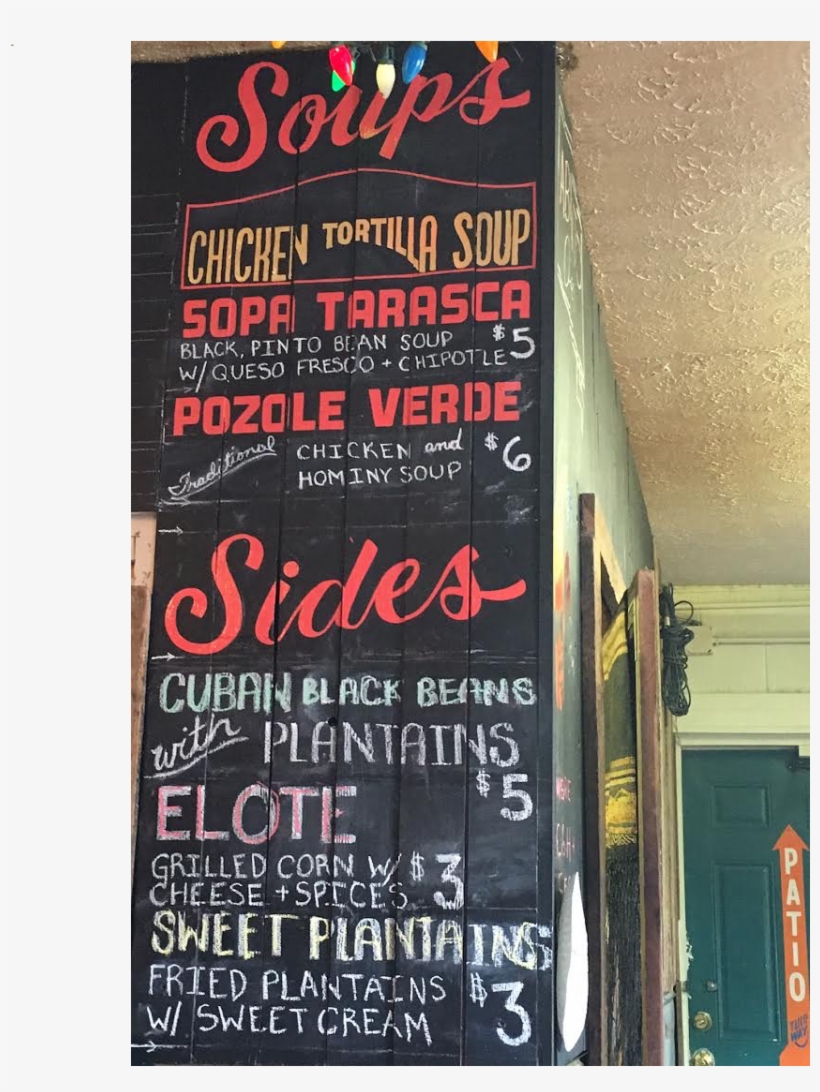 Soups
CHICKEN TORTILLA SOUP
SOPA TARASCA
BLACK, PINTO BEAN SOUP
W/ QUESO FRESCO + CHIPOTLE
$5
POZOLE VERDE
Traditional CHICKEN and
HOMINY SOUP
$6
Sides
CUBAN BLACK BEANS
with PLANTAINS
$5
ELOTE
GRILLED CORN W/
CHEESE + SPICES
$3
SWEET PLANTAINS
FRIED PLANTAINS
W/ SWEET CREAM
$3
PATIO